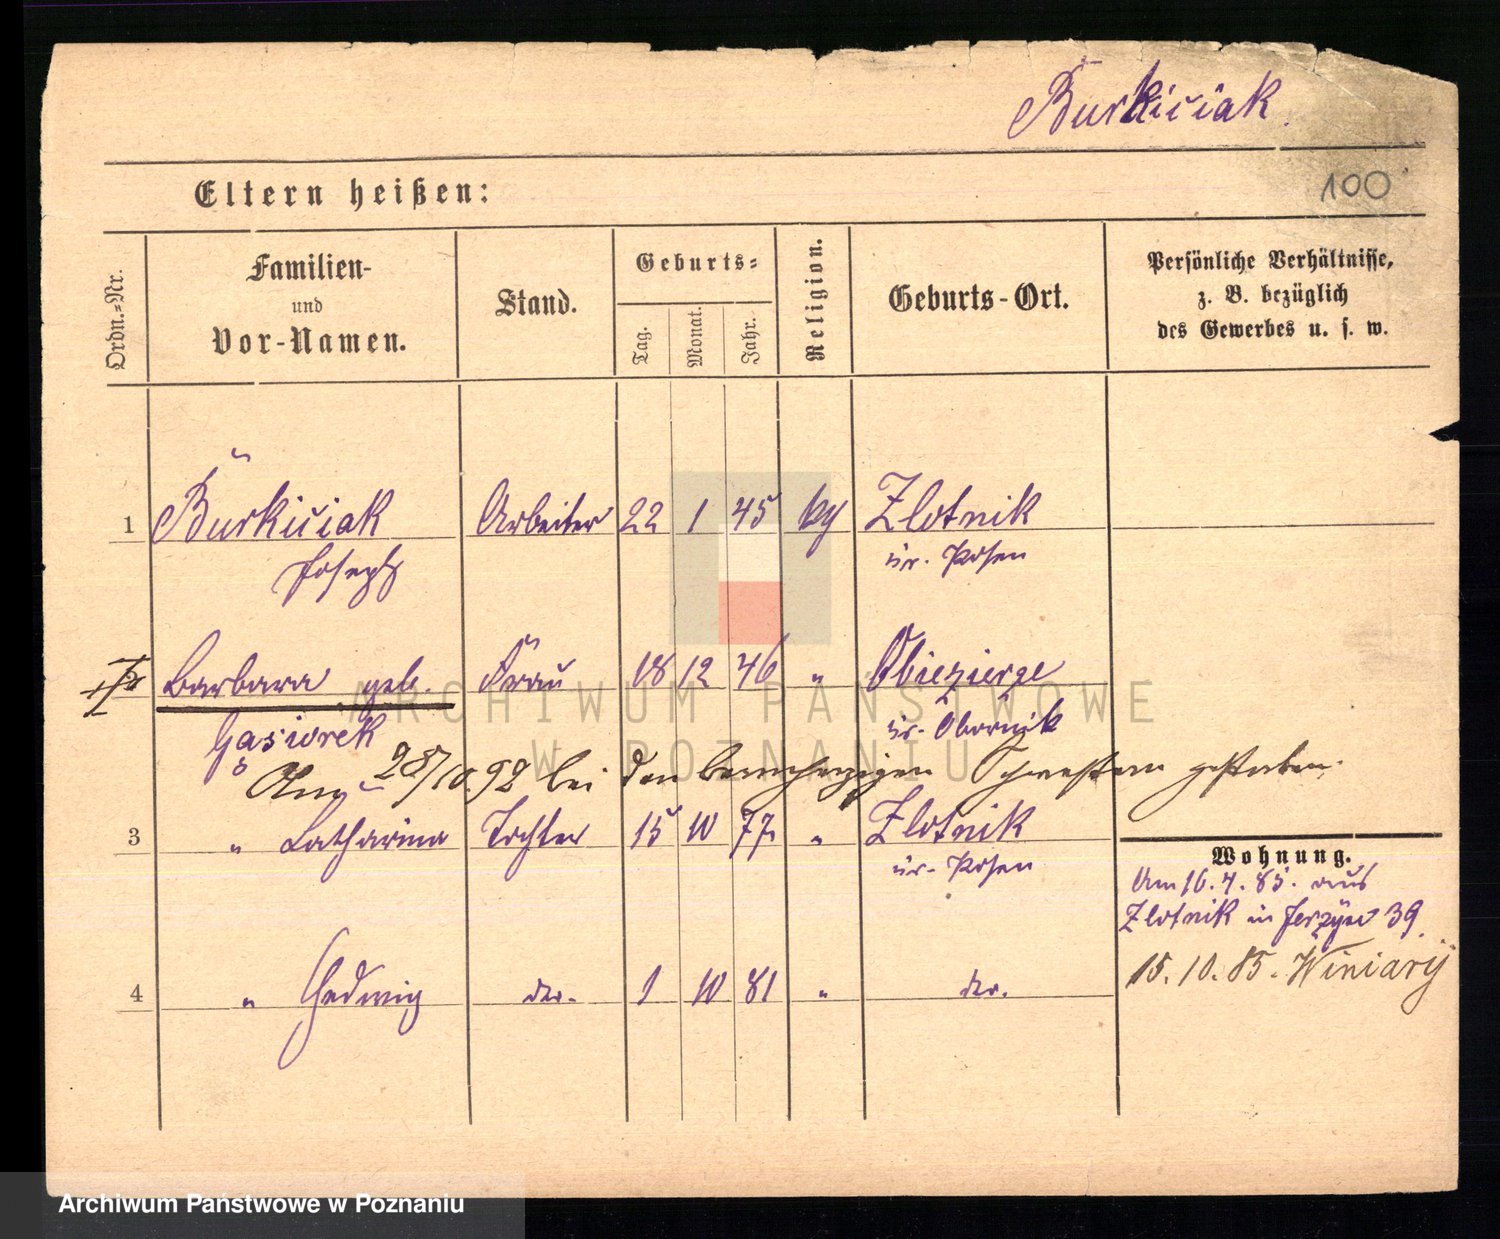 Burkiciak.
Eltern heißen:
100
Ordn.-Nr.
Familien-
und
Vor-Namen.
Stand.
Geburts-
Tag.
Monat.
Jahr.
Religion.
Geburts-Ort.
Persönliche Verhältnisse,
z. B. bezüglich
des Gewerbes u. s. w.
1 Burkiciak Arbeiter 22 1 45 Zlotnik
Joseph Kr. Posen
Barbara geb. Frau 18 12 46 " Obiezierze
Gąsiorek Kr. Obornik
28/10.92 bei den barmherzigen Schwestern gestorben.
3 " Catharina Tochter 15 10 77 " Zlotnik
Kr. Posen
4 " Hedwig do. 1 10 81 " do.
Wohnung.
Am 16.4.85. aus
Zlotnik in Jerzyce 39.
15.10.85. Winiary
ARCHIWUM PAŃSTWOWE
W POZNANIU
Archiwum Państwowe w Poznaniu